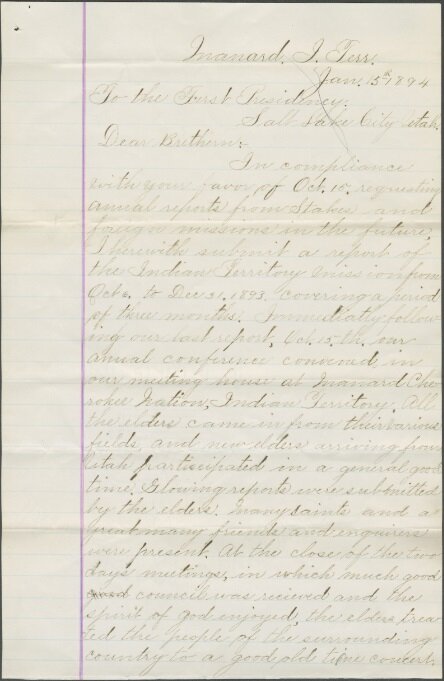 Manard, I. Terr.
Jan. 15th 1894
To the First Presidency.
Salt Lake City Utah.
Dear Brethern:-
In compliance
with your favor of Oct. 10. requesting
annual reports from Stakes and
foreign missions in the future,
I herewith submit a report of
the Indian Territory Mission from
Oct 6. to Dec 31. 1893. covering a period
of three months. Immediatly follow-
ing our last report, Oct. 15, th. our
annual conference convened, in
our meeting house at Manard Che
rokee Nation, Indian Territory. All
the elders came in from their various
fields, and new elders arriving from
Utah partisipated in a general good
time. Glowing reports were submitted
by the elders. Many saints and a
great many friends and enquirers
were present. At the close of the two
days meetings, in which much good
council was recieved and the
spirit of God enjoyed, the elders trea-
ted the people of the surrounding
country to a good old time concert.